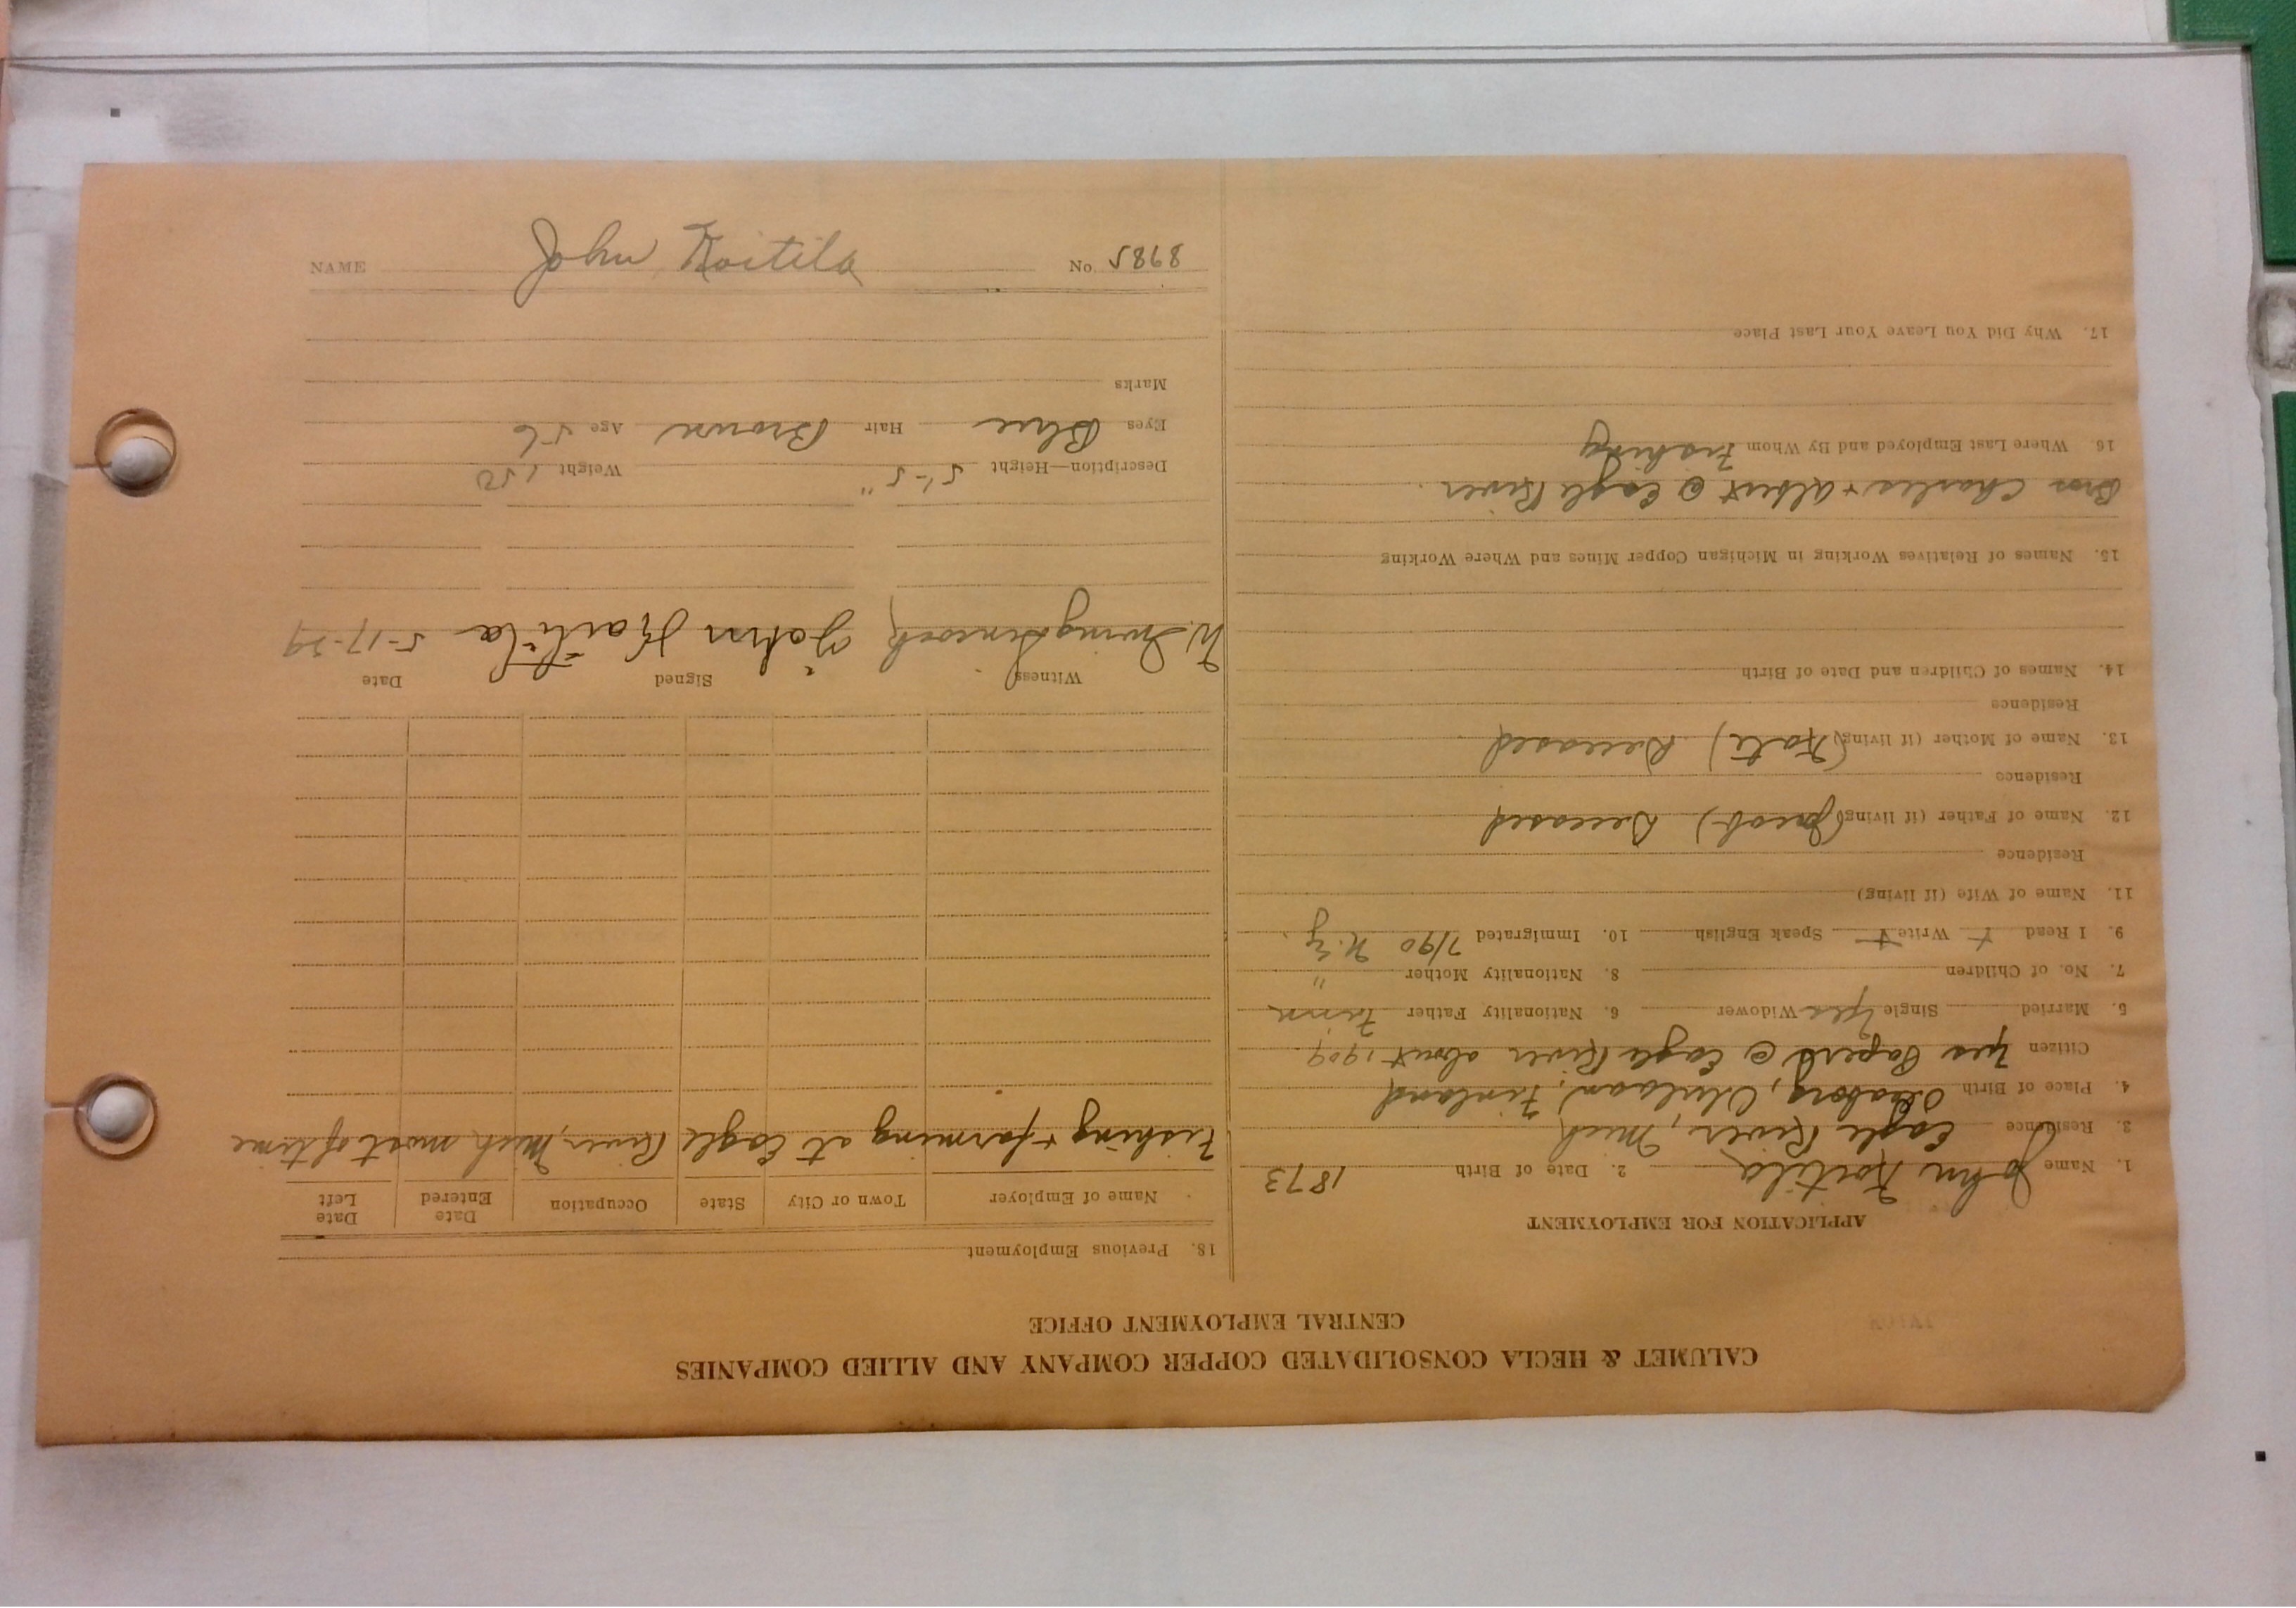 CALUMET & HECLA CONSOLIDATED COPPER COMPANY AND ALLIED COMPANIES
CENTRAL EMPLOYMENT OFFICE
APPLICATION FOR EMPLOYMENT
1. Name John Koitila 2. Date of Birth 1873
3. Residence Eagle River, Mich
4. Place of Birth Uleaborg, Finland
Citizen Yes Papers @ Eagle River about 1909.
5. Married Single Yes Widower 6. Nationality Father Finn
7. No. of Children 8. Nationality Mother "
9. I Read + Write + Speak English 10. Immigrated 7/90 N.Y.
11. Name of Wife (if living)
Residence
12. Name of Father (if living) (Jacob) Deceased
Residence
13. Name of Mother (if living) (Kate) Deceased
Residence
14. Names of Children and Date of Birth
15. Names of Relatives Working in Michigan Copper Mines and Where Working
Bros Charles + Albert @ Eagle River.
16. Where Last Employed and By Whom Fishing
17. Why Did You Leave Your Last Place
18. Previous Employment
Name of Employer Town or City State Occupation Date Entered Date Left
Fishing + farming at Eagle River, Mich most of time
Witness Signed Date
W. Irving John Koitila 5-17-29
Description—Height 5'-5" Weight 150
Eyes Blue Hair Brown Age 56
Marks
NAME John Koitila No 5898